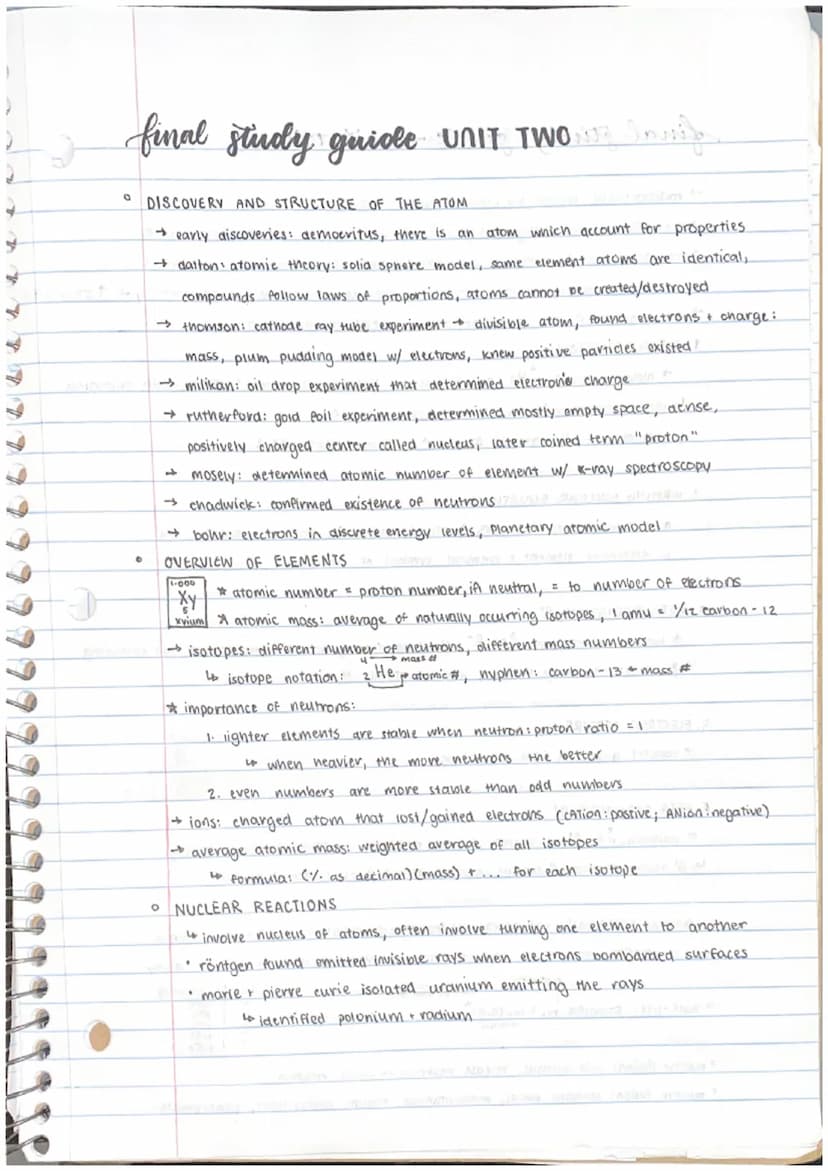 final study guide UNIT TWO
◦ DISCOVERY AND STRUCTURE OF THE ATOM
→ early discoveries: democritus, there is an atom which account for properties
→ dalton: atomic theory: solid sphere model, same element atoms are identical,
compounds follow laws of proportions, atoms cannot be created/destroyed
→ thomson: cathode ray tube experiment → divisible atom, found electrons + charge:
mass, plum pudding model w/ electrons, knew positive particles existed
→ milikan: oil drop experiment that determined electronic charge
→ rutherford: gold foil experiment, determined mostly empty space, dense,
positively charged center called nucleus, later coined term "proton"
→ mosely: determined atomic number of element w/ x-ray spectroscopy
→ chadwick: confirmed existence of neutrons
→ bohr: electrons in discrete energy levels, planetary atomic model
• OVERVIEW OF ELEMENTS
1.000
Xy
5
xyium
* atomic number = proton number, if neutral, = to number of electrons
* atomic mass: average of naturally occurring isotopes, 1 amu = 1/12 carbon-12
→ isotopes: different number of neutrons, different mass numbers
↳ isotope notation: 4 2 He → mass # → atomic #, hyphen: carbon-13 ← mass #
* importance of neutrons:
1. lighter elements are stable when neutron:proton ratio = 1
↳ when heavier, the more neutrons the better
2. even numbers are more stable than odd numbers
→ ions: charged atom that lost/gained electrons (cATion: postive; ANion: negative)
→ average atomic mass: weighted average of all isotopes
↳ formula: (% as decimal)(mass) + ... for each isotope
◦ NUCLEAR REACTIONS
↳ involve nucleus of atoms, often involve turning one element to another
• röntgen found emitted invisible rays when electrons bombarded surfaces
• marie + pierre curie isolated uranium emitting the rays
↳ identified polonium + radium